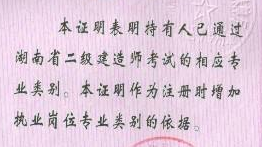 本证明表明持有人已通过
湖南省二级建造师考试的相应专
业类别。本证明作为注册时增加
执业岗位专业类别的依据。